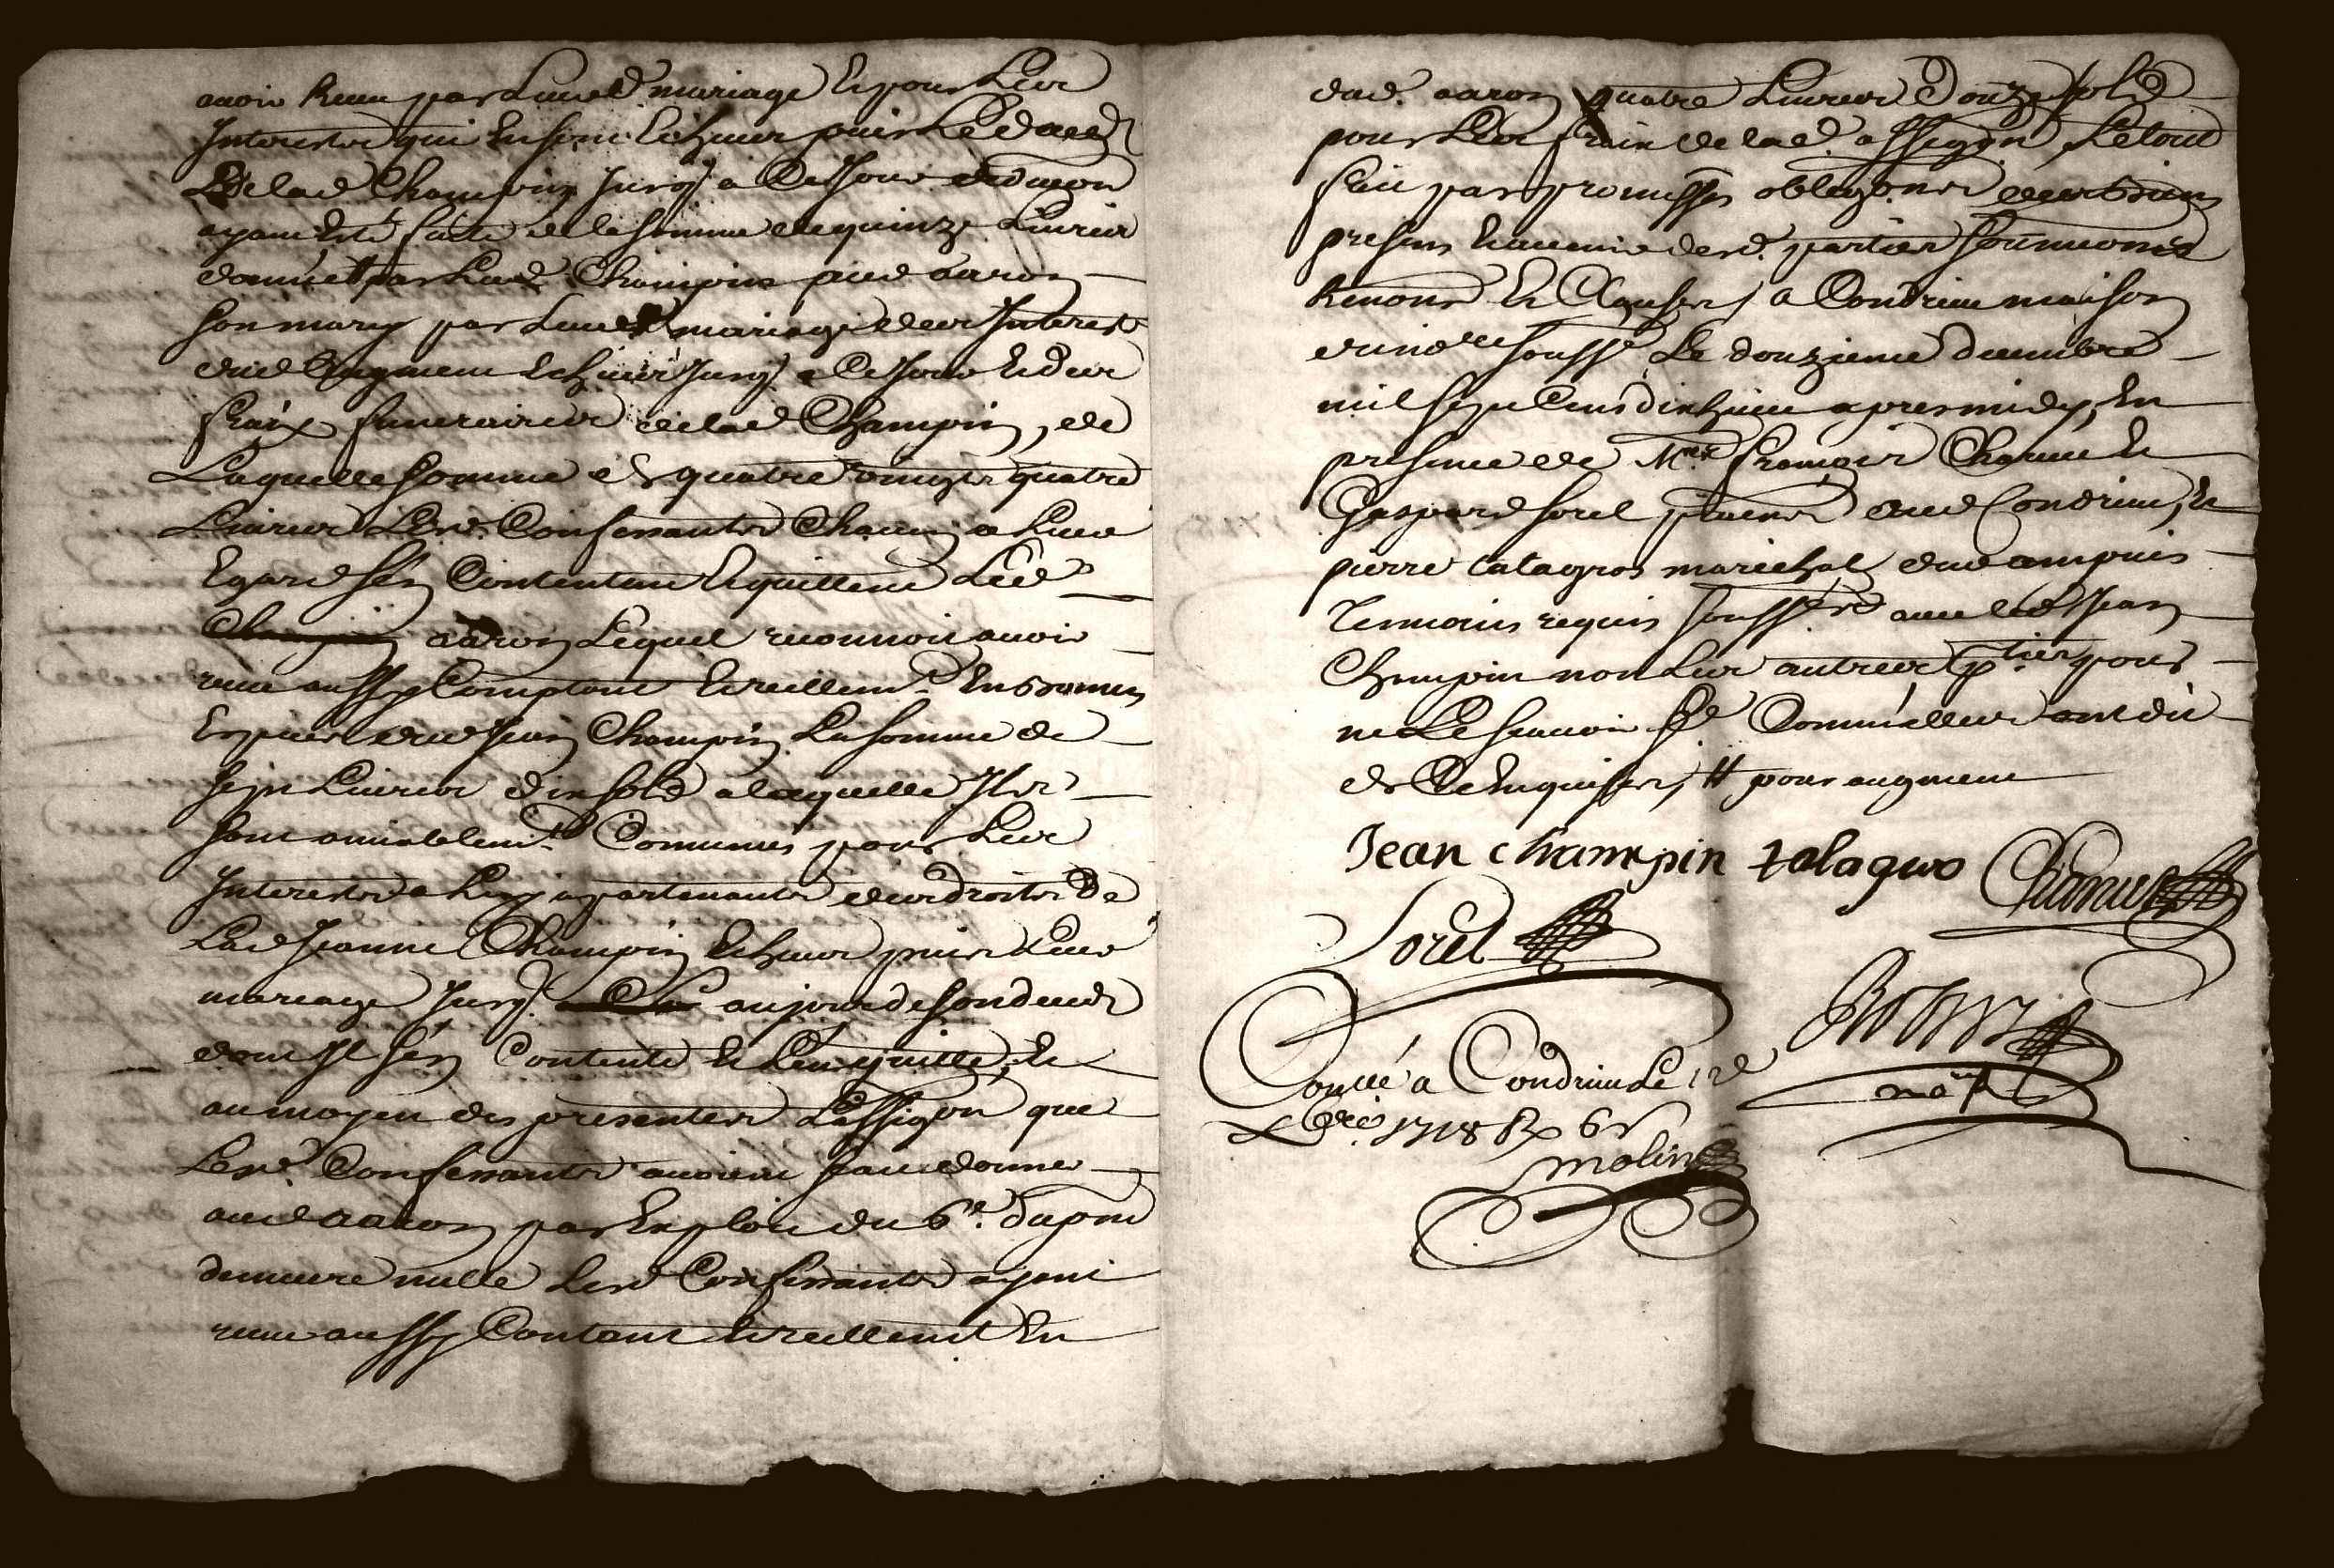 avoir receu par leurd mariage et pour les
Interests qui en sont escheus puis le deces
de lad Champin jusq. a ce jour
ayant esté faite de la somme de quinze livres
donnée par lad Champin aud aaron
son mary par leurd mariage des Interests
dud augment escheus jusq. a ce jour et des
fraix funeraires de lad Champin, de
Laquelle somme de quatre vingts quatre
Livres Lesd. Confessants chacun a leur
Egard s'en contentent et quittent Led
aaron Lequel reconnoit avoir
receu aussy comptant et reellemt. en bonnes
Especes dud Jean Champin La somme de
sept Livres dix sols a laquelle Ils
sont amiablemt. convenus pour les
Interests a luy appartenants des droits de
Lad Jeanne Champin escheus puis leur
mariage jusq. au jour de son deces
dont Il s'en contente et l'en quitte, et
au moyen des presentes l'assigon que
Lesd. Confessants avoient fait donner
aud aaron par Exploit du 6e. du pnt
demeure nulle Lesd Confessants ayant
receu aussy contant et reellemt en
dud. aaron quatre Livres douze sols
pour les frais de lad. assigon, Le tout
fait par promesses obligons des biens
presens et avenir desd. parties soumions
Renons et Clauses, a Condrieu maison
du nore soussé Le douzieme decembre
mil sept cens dix huict apres midy, En
presence de Mre françois Chanue et
Gaspard sorel dud Condrieu, et
pierre talagros mareschal dud ampuis
Temoins requis soussés avec led Jean
Champin non les autres pties pour
ne Le scavoir Comme elles ont dit
de ce enquises, # pour augment
Jean champin talagros Chanue
Sorel
Conllé a Condrieu Le 12e
Xbre 1718 Rx 6s
molin